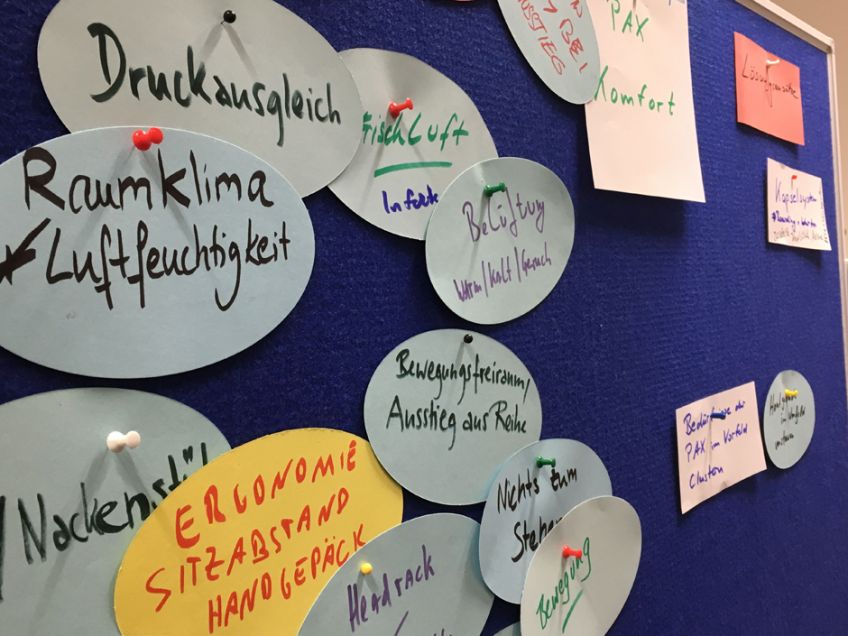 Druckausgleich
FrischLuft
BEI
STIEG
PAX
Komfort
Lösungsansätze
Raumklima
Luftfeuchtigkeit
Belüftung
Warm/Kalt/Geruch
Kapselsystem
Bewegungsfreiraum/
Ausstieg aus Reihe
Bedürfnisse der
PAX im Vorfeld
clustern
Nackenstü
ERGONOMIE
SITZABSTAND
HANDGEPÄCK
Nichts zum
Stehen
Headrack
Bewegung